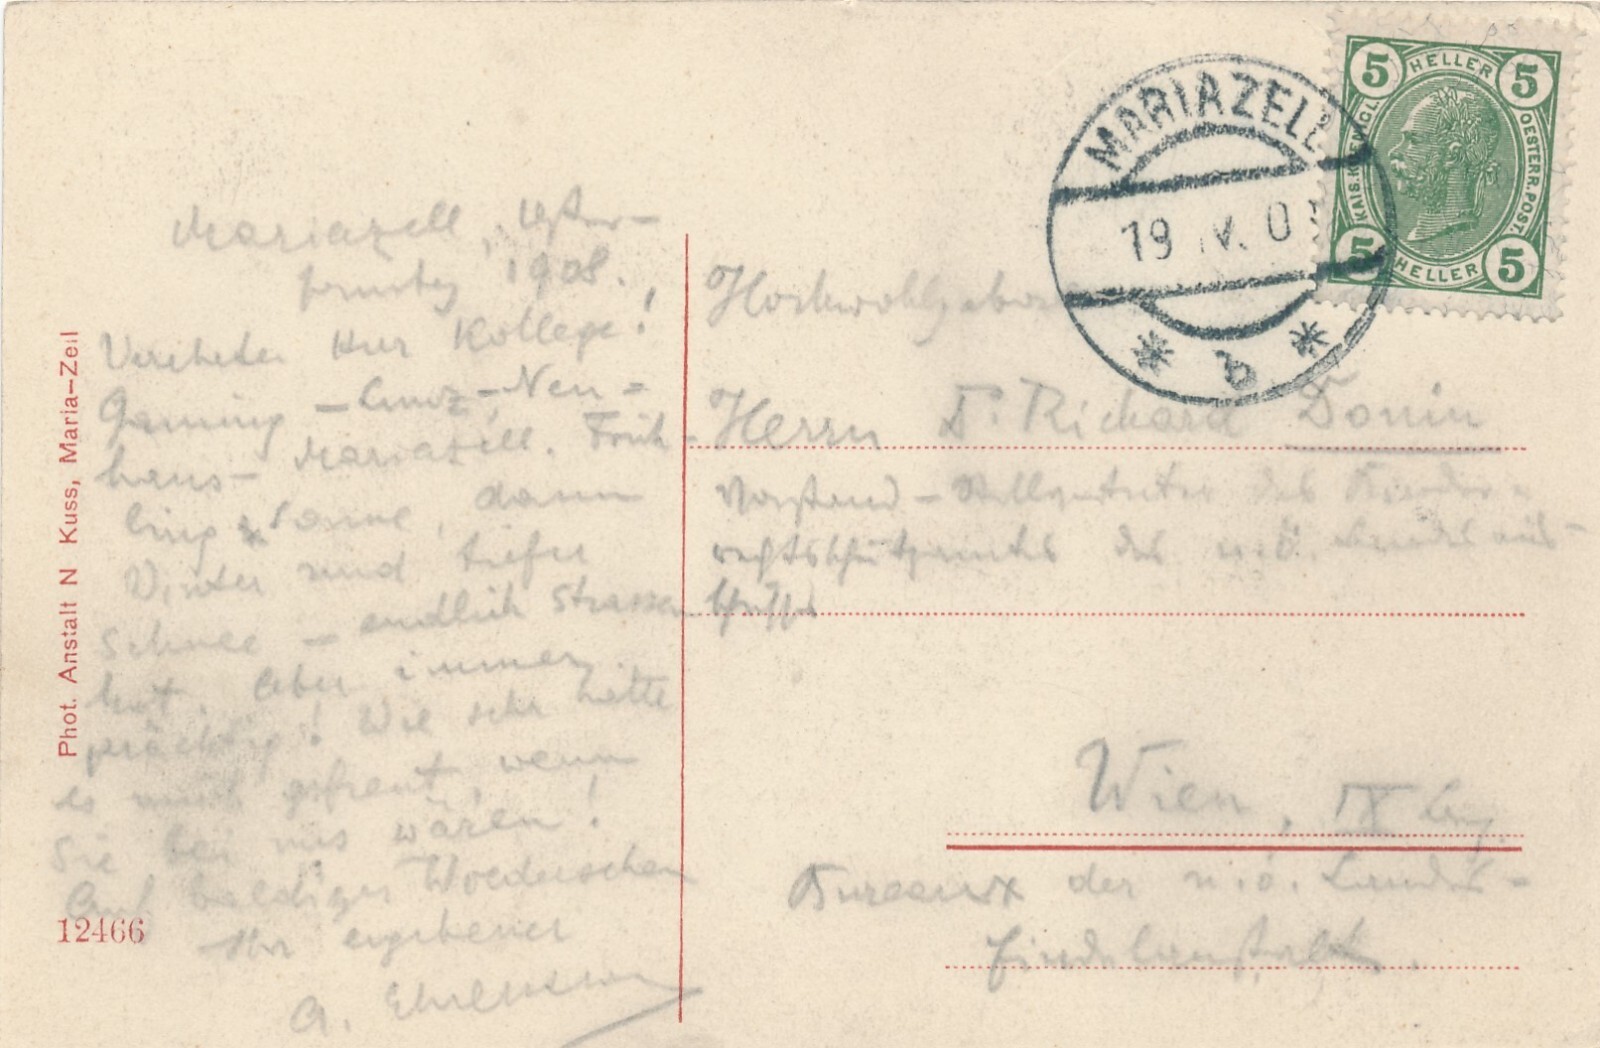 Mariazell, Oster-
sonntag 1908.
Verehrter Herr Kollege!
Gaming – Lunz – Neu=
haus – Mariazell. Früh-
ling & Sonne, dann
Winter und tiefer
Schnee – endlich Strassen
kot. Aber immer
prächtig! Wie sehr hätte
es mich gefreut, wenn
Sie bei uns wären!
Auf baldiges Wiedersehen
Ihr ergebener
A.
Phot. Anstalt N Kuss, Maria-Zell
12466
MARIAZELL
19 IV. 0
5 HELLER 5
KAIS. KÖNIGL. OESTERR. POST.
5 HELLER 5
Hochwohlgeboren
Herrn Dr. Richard Donin
Vorstand-Stellvertreter des Kinder=
rechtsschutzamtes des n.ö. Landesaus-
schusses
Wien, IX
Bureaux der n.ö. Landes-
Findelanstalt.